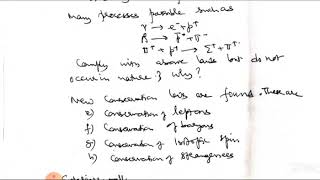 Many processes possible such as
γ → e⁻ + p⁺
→ p⁺ + π⁻
π⁺ + p⁺ → Σ⁺ + π⁺
Comply with above laws but do not
occur in nature & why?
New Conservation laws are found. These are
e) Conservation of leptons
f) Conservation of baryons
g) Conservation of Isotopic spin
h) Conservation of strangeness